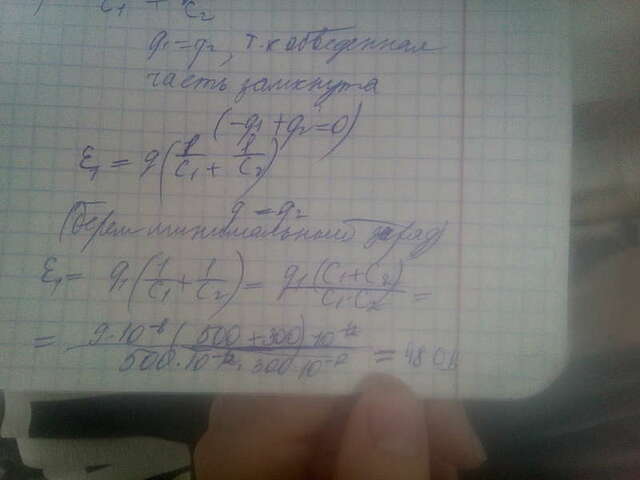 C₁ C₂
q₁ = q₂, т.к обведенная
часть замкнута
(-q₁ + q₂ = 0)
Ɛ₁ = q(1/C₁ + 1/C₂)
q = q₂
(берем минимальный заряд)
Ɛ₁ = q₁(1/C₁ + 1/C₂) = q₁(C₁+C₂)/C₁·C₂ =
= 9·10⁻⁸(500+300)·10⁻¹²/500·10⁻¹²·300·10⁻¹² = 480В